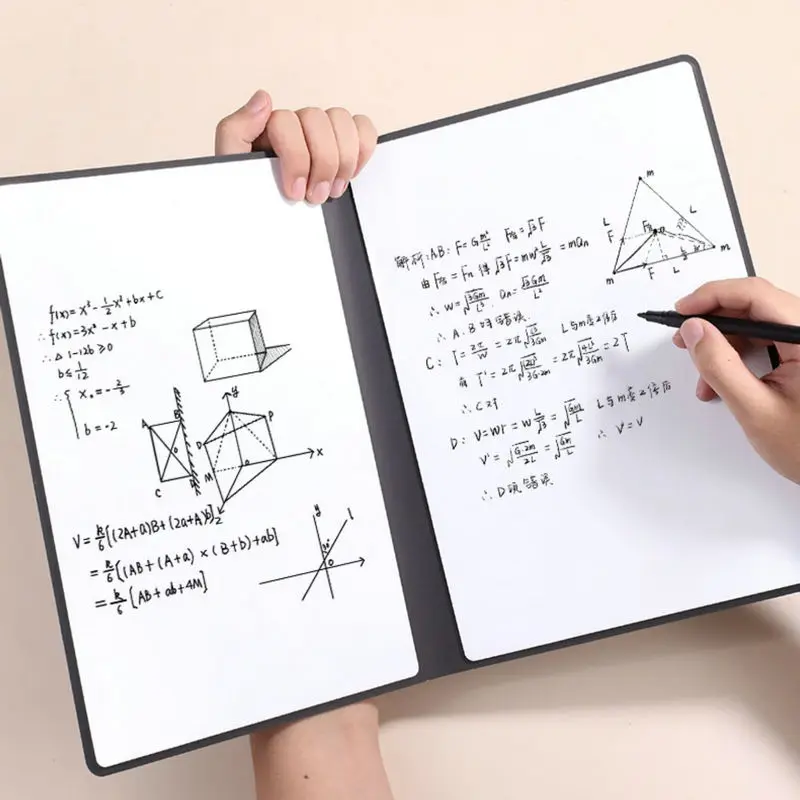 f(x)=x³-½x²+bx+C
∴f(x)=3x²-x+b
∴△ 1-12b⩾0
b≤1/12
∴{ x₀=-2/3
b=-2
A
B
O
C
D
y
P
D
M
o
x
z
V=k/6[(2A+a)B+(2a+A)b]
=k/6[(AB+(A+a)×(B+b)+ab]
=k/6[AB+ab+4M]
y
l
30°
O
解析:AB: F=Gm²/L² F合=√3F
由F合=Fn 得√3F=mw²L/√3=man
∴w=√(3Gm/L³) an=√3Gm/L²
∴A.B均错误
C: T=2π/w=2π√(L³/3Gm) L与m变2倍后
有T'=2π√((2L)³/3G·2m)=2π√(4L³/3Gm)=2T
∴C对
D: V=Wr=w L/√3=√(Gm/L) L与m变2倍后
V'=√(G·2m/2L)=√(Gm/L) ∴V'=V
∴D项错误
m
L
F
L
F合
m
F
L
m